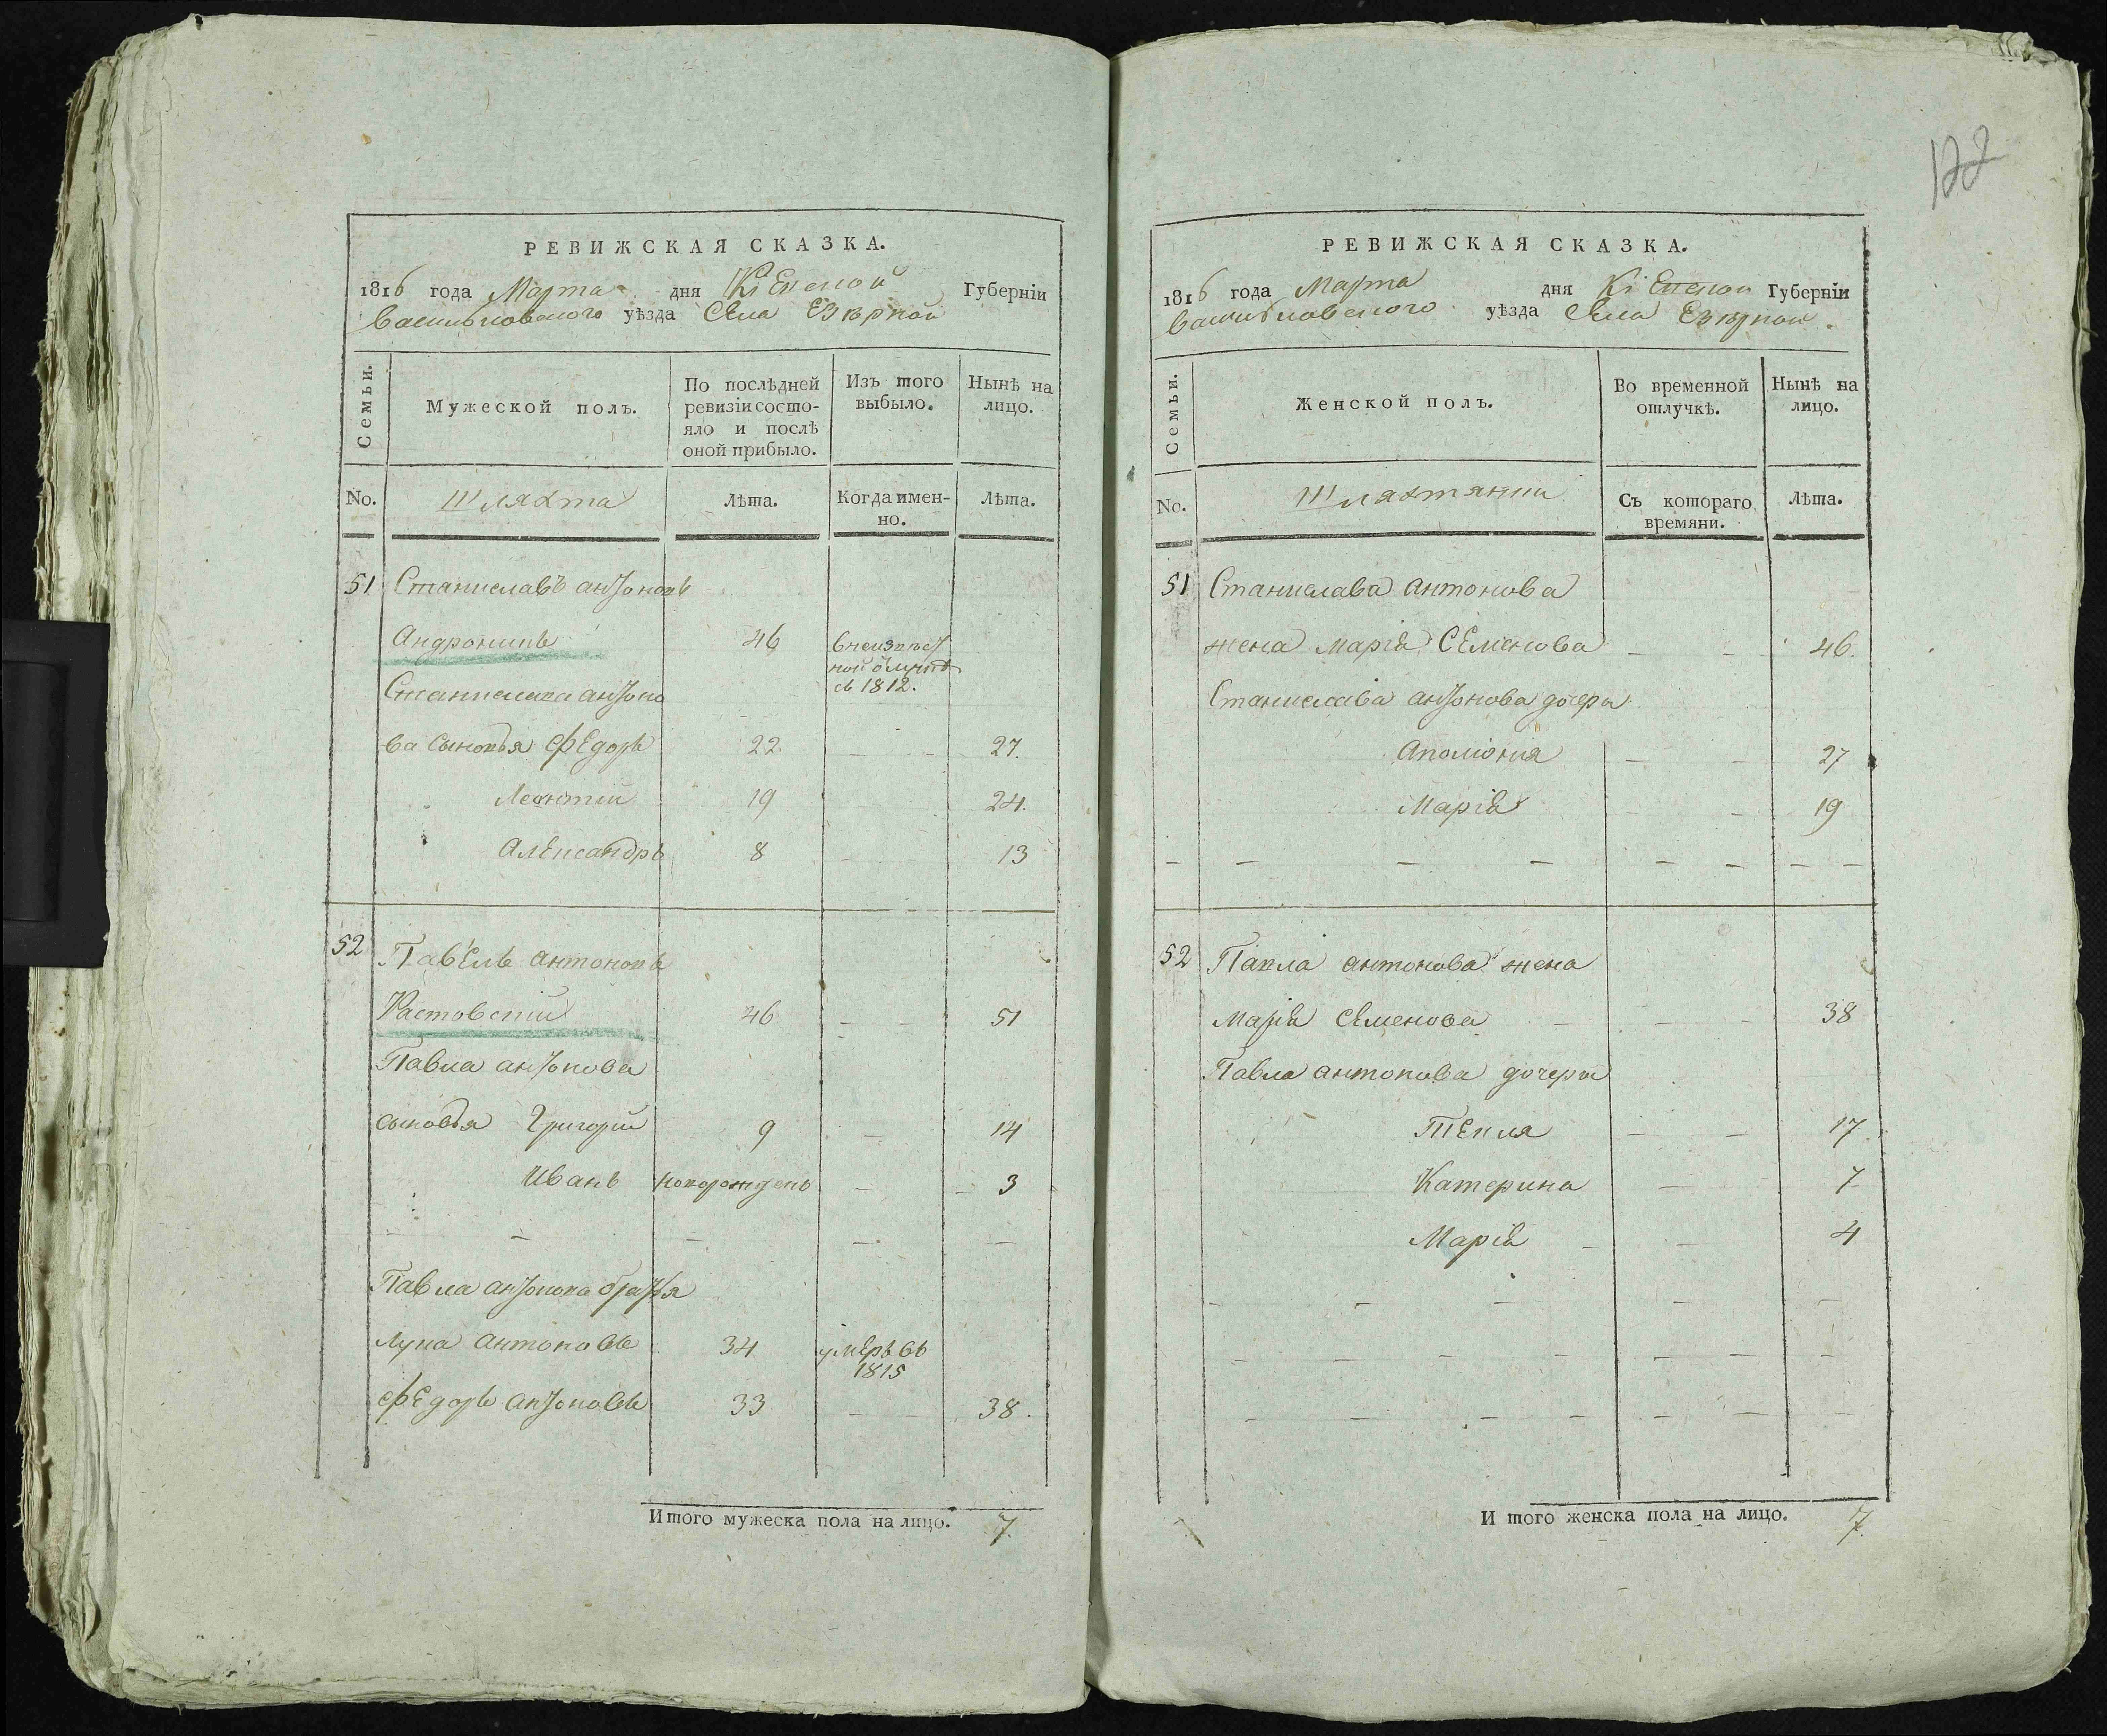 122
РЕВИЖСКАЯ СКАЗКА.
1816 года Марта дня Кіевской Губерніи
Васильковского уѣзда Села Езѣрной
Семьи.
Мужеской полъ.
По послѣдней ревизіи состо-
яло и послѣ
оной прибыло.
Изъ того выбыло.
Нынѣ на лицо.
No.
Шляхта
Лѣта.
Когда имен-
но.
Лѣта.
51 Станиславъ антоновъ
Андроникъ 46 в неизвѣст
ной отлучкѣ
съ 1812.
Станислава антоно
ва сыновья Федоръ 22 27.
Леонтий 19 24.
Александръ 8 13
52 Павелъ антоновъ
Растовскій 46 51
Павла антонова
сыновья Григорий 9 14
Иванъ новорожденъ 3
Павла антонова братья
Лука антоновъ 34 умеръ въ
1815
Федоръ антоновъ 33 38.
Итого мужеска пола на лицо. 7.
РЕВИЖСКАЯ СКАЗКА.
1816 года Марта дня Кіевской Губерніи
Васильковского уѣзда Села Езѣрной.
Семьи.
Женской полъ.
Во временной отлучкѣ.
Нынѣ на лицо.
No.
Шляхтянки
Съ котораго времяни.
Лѣта.
51 Станислава антонова
жена Марія Семенова 46.
Станислава антонова дочери
Аполонія 27
Марія 19
52 Павла антонова жена
Марія Семенова 38
Павла антонова дочери
Текля 17
Катерина 7
Марія 4
И того женска пола на лицо. 7.